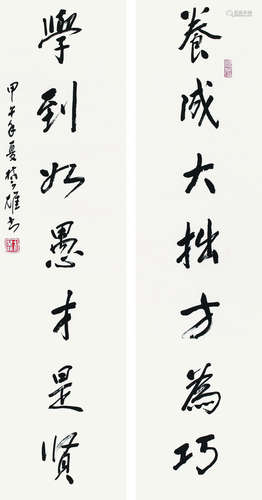 養成大拙方為巧
學到如愚才是賢
甲午年夏楚雄書